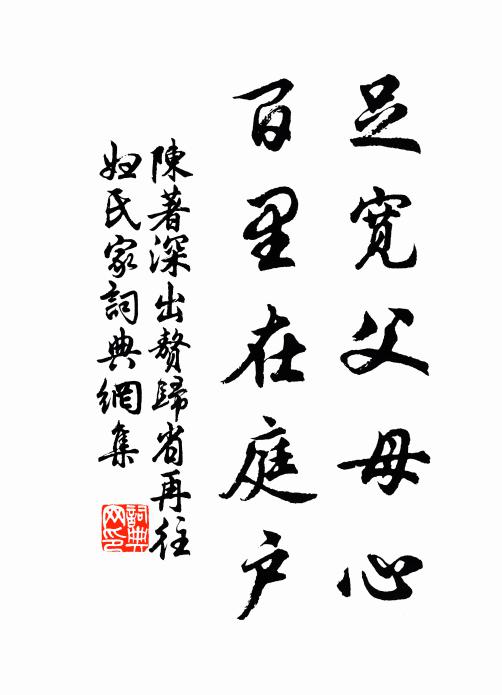 足寬父母心
百里在庭户
陳著深出贅歸省再往
妇氏家詞典網集
詞典网